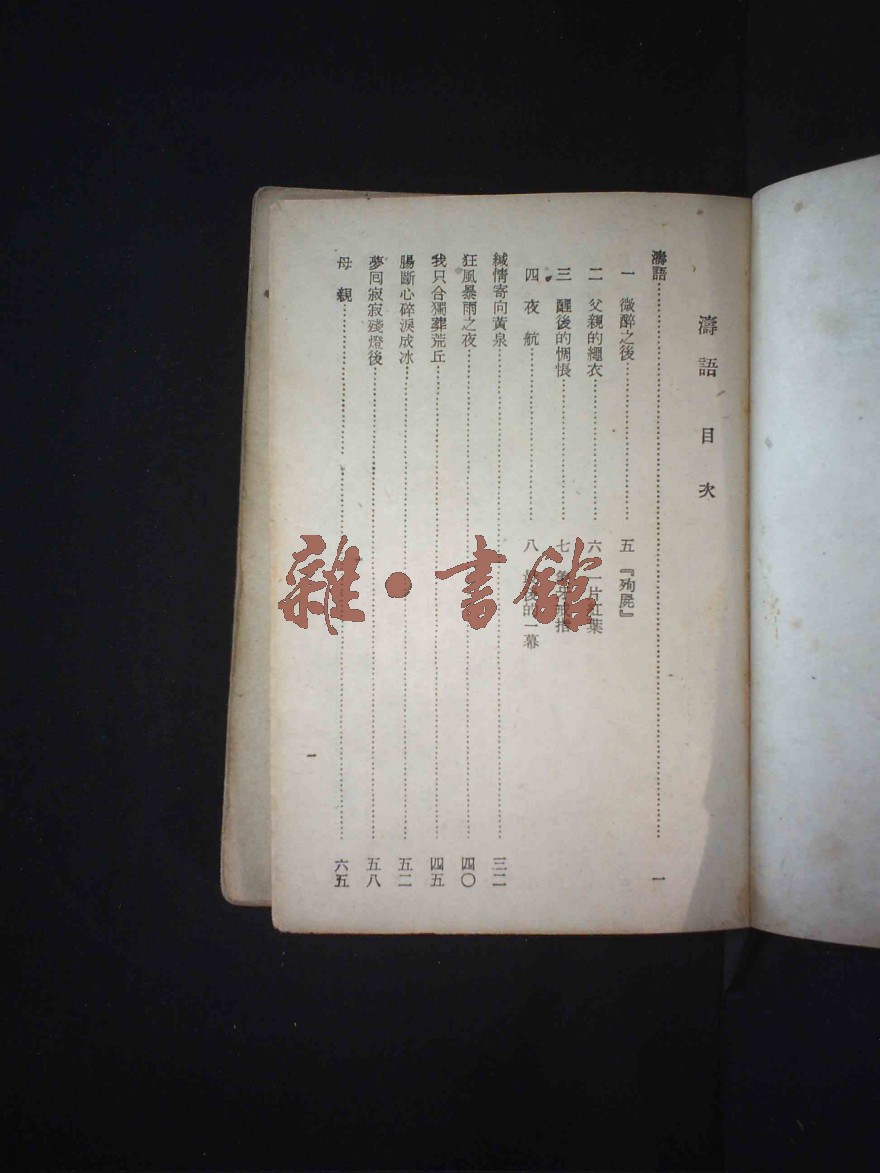 濤語目次
濤語 一
一 微醉之後
五 『殉屍』
二 父親的繩衣
六 一片紅葉
三 醒後的惆悵
七 象牙戒指
四 夜航
八 最後的一幕
緘情寄向黃泉 三二
狂風暴雨之夜 四〇
我只合獨葬荒丘 四五
腸斷心碎淚成冰 五二
夢回寂寂殘燈後 五八
母親 六五
一
雜·書館